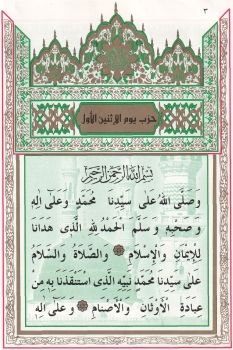 ٣
حزب يوم الاثنين الأول
بسم الله الرحمن الرحيم
وَصَلَّى اللهُ عَلَى سَيِّدِنَا مُحَمَّدٍ وَعَلَى آلِهِ
وَصَحْبِهِ وَسَلَّمَ الْحَمْدُ لِلَّهِ الَّذِي هَدَانَا
لِلْإِيمَانِ وَالْإِسْلَامِ وَالصَّلَاةُ وَالسَّلَامُ
عَلَى سَيِّدِنَا مُحَمَّدٍ نَبِيِّهِ الَّذِي اسْتَنْقَذَنَا بِهِ مِنْ
عِبَادَةِ الْأَوْثَانِ وَالْأَصْنَامِ وَعَلَى آلِهِ